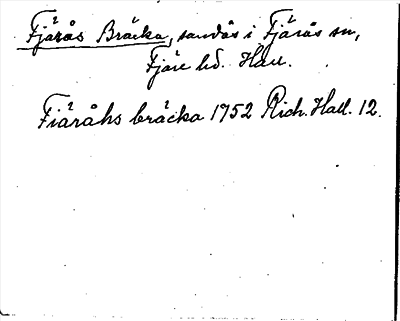 Fjärås Bräcka, sandås i Fjärås sn,
Fjäre hd. Hall.
Fiäråhs bräcka 1752 Rich. Hall. 12.